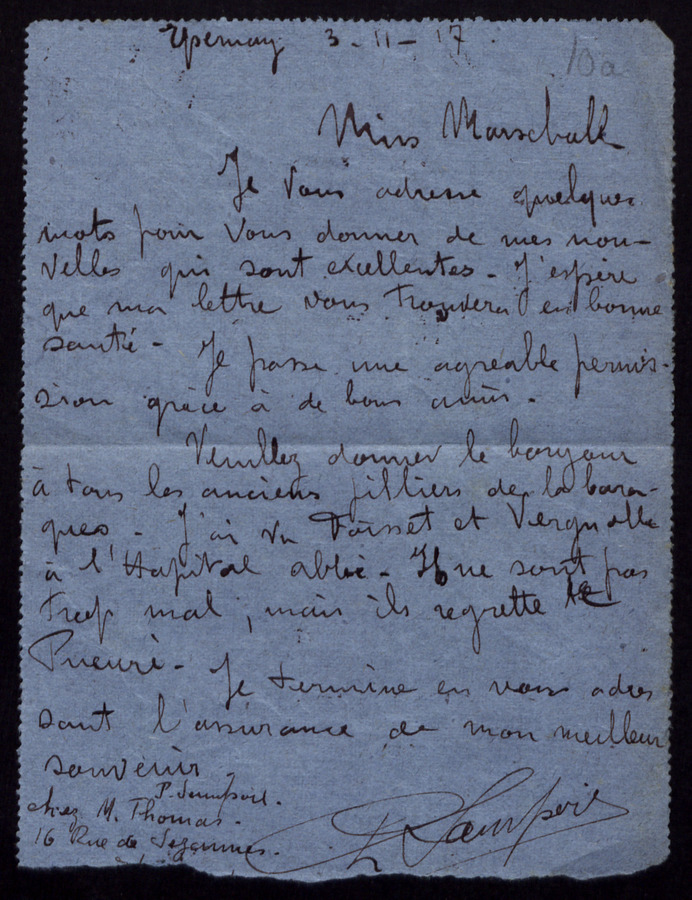 Epernay 3-11-17.
10a
Miss Marschall
Je vous adresse quelques
mots pour vous donner de mes nou-
velles qui sont excellentes - J'espère
que ma lettre vous trouvera en bonne
santé - Je passe une agreable permis-
sion grâce à de bons amis -
Veuillez donner le bonjour
à tous les anciens pilliers de la bara-
ques - J'ai vu et
à l'Hopital - Il ne sont pas
trop mal, mais ils regrette le
Prieuré - Je termine en vous adres
sant l'assurance de mon meilleur
souvenir
chez M. Thomas -
16 Rue de